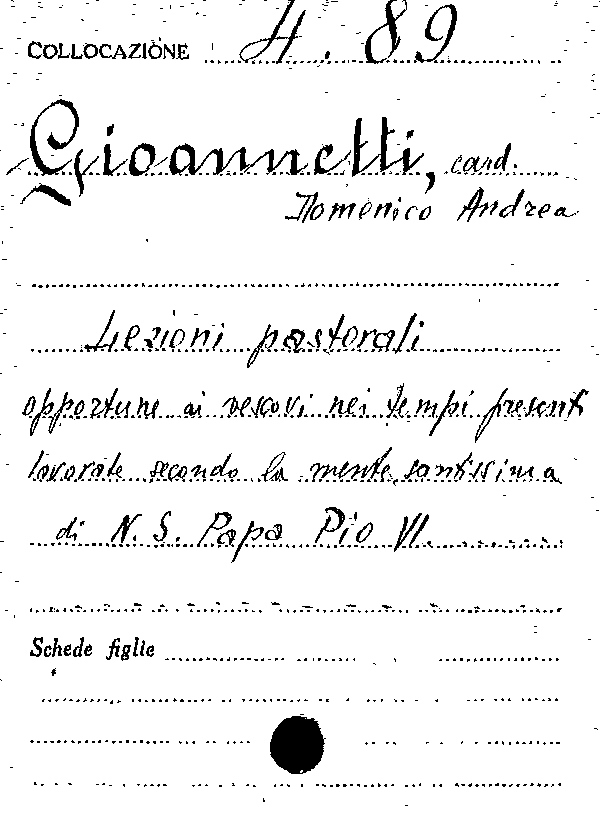 COLLOCAZIONE 4.89
Gioannetti, card.
Domenico Andrea
Lezioni pastorali
opportune ai vescovi nei tempi presenti
lavorate secondo la mente santissima
di N. S. Papa Pio VI.
Schede figlie